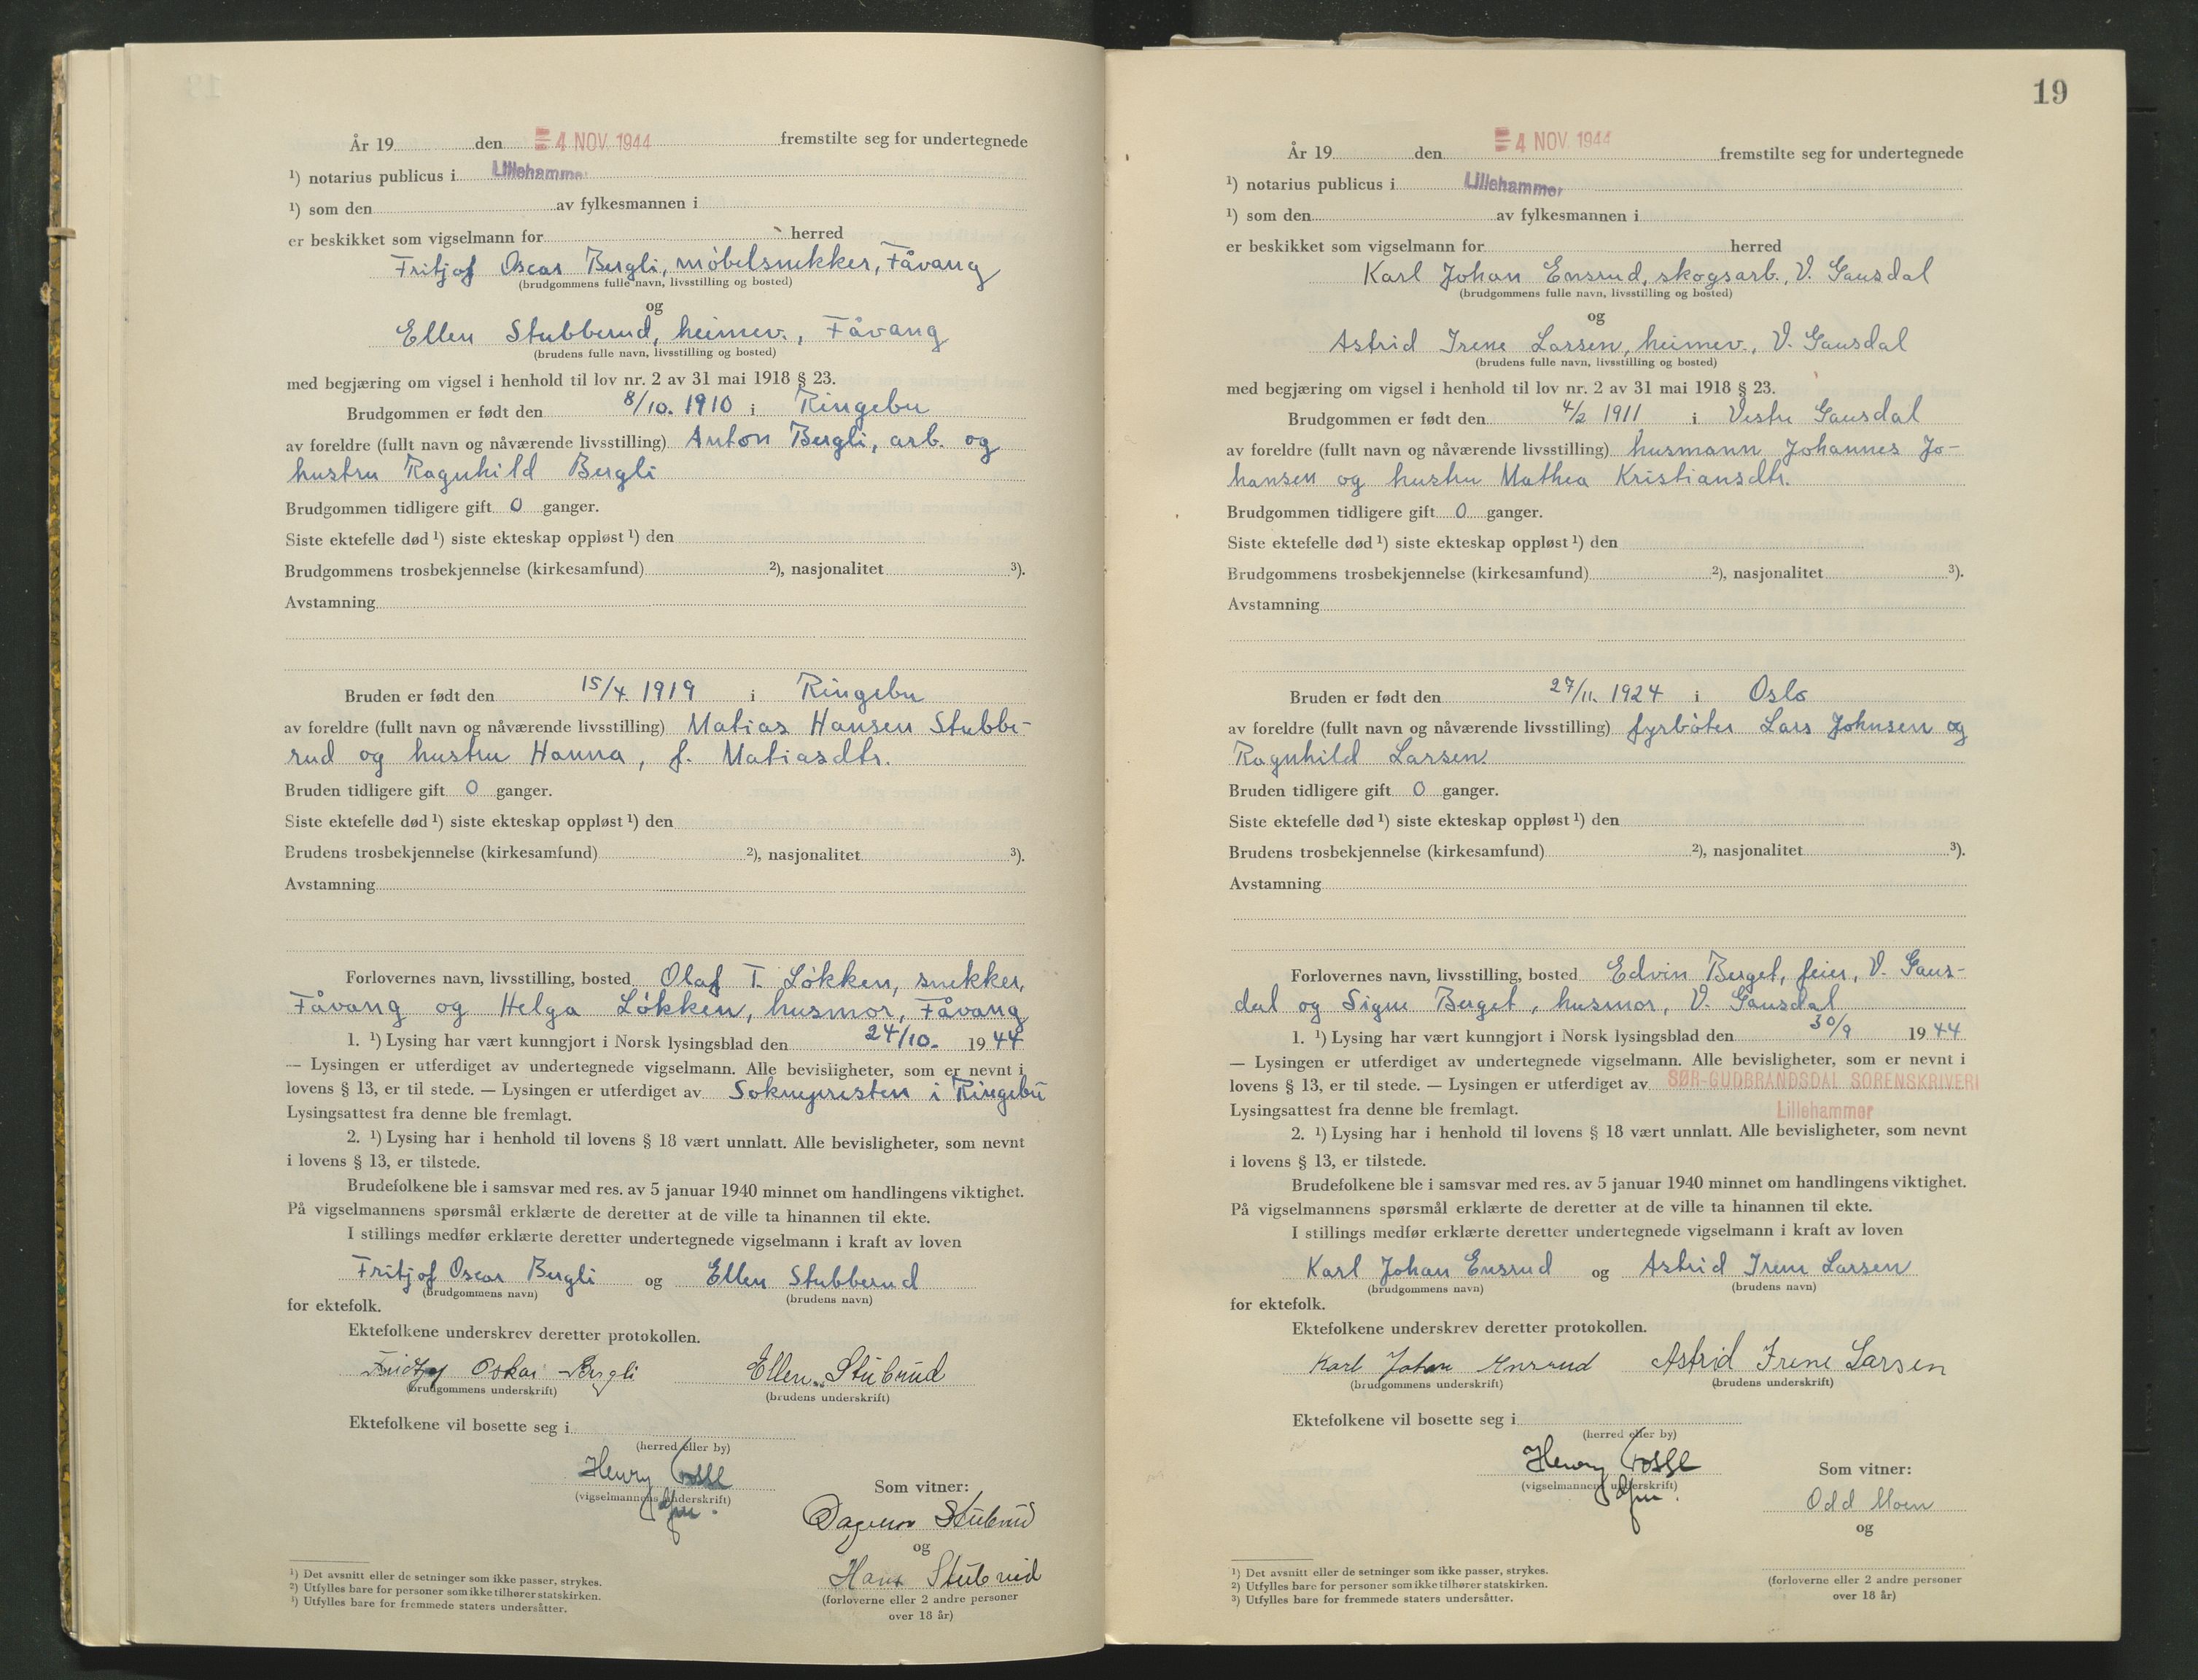 År 19 den = 4 NOV. 1944 fremstilte seg for undertegnede
¹) notarius publicus i Lillehammer
¹) som den av fylkesmannen i
er beskikket som vigselmann for herred
Fritjof Oscar Bergli, møbelsnekker, Fåvang
(brudgommens fulle navn, livsstilling og bosted)
og
Ellen Stubberud, heimev., Fåvang
(brudens fulle navn, livsstilling og bosted)
med begjæring om vigsel i henhold til lov nr. 2 av 31 mai 1918 § 23.
Brudgommen er født den 8/10. 1910 i Ringebu
av foreldre (fullt navn og nåværende livsstilling) Anton Bergli, arb. og
hustru Ragnhild Bergli
Brudgommen tidligere gift 0 ganger.
Siste ektefelle død ¹) siste ekteskap oppløst ¹) den
Brudgommens trosbekjennelse (kirkesamfund) ²), nasjonalitet ³).
Avstamning
Bruden er født den 15/4. 1919 i Ringebu
av foreldre (fullt navn og nåværende livsstilling) Matias Hansen Stubbe-
rud og hustru Hanna, f. Matiasdtr.
Bruden tidligere gift 0 ganger.
Siste ektefelle død ¹) siste ekteskap oppløst ¹) den
Brudens trosbekjennelse (kirkesamfund) ²), nasjonalitet ³).
Avstamning
Forlovernes navn, livsstilling, bosted Olaf T. Løkken, snekker,
Fåvang og Helga Løkken, husmor, Fåvang
1. ¹) Lysing har vært kunngjort i Norsk lysingsblad den 24/10. 1944
— Lysingen er utferdiget av undertegnede vigselmann. Alle bevisligheter, som er nevnt i
lovens § 13, er til stede. — Lysingen er utferdiget av Soknepresten i Ringebu
Lysingsattest fra denne ble fremlagt.
2. ¹) Lysing har i henhold til lovens § 18 vært unnlatt. Alle bevisligheter, som nevnt
i lovens § 13, er tilstede.
Brudefolkene ble i samsvar med res. av 5 januar 1940 minnet om handlingens viktighet.
På vigselmannens spørsmål erklærte de deretter at de ville ta hinannen til ekte.
I stillings medfør erklærte deretter undertegnede vigselmann i kraft av loven
Fritjof Oscar Bergli og Ellen Stubberud
(brudgommens navn) (brudens navn)
for ektefolk.
Ektefolkene underskrev deretter protokollen.
Oskar Bergli Ellen Stubrud
(brudgommens underskrift) (brudens underskrift)
Ektefolkene vil bosette seg i
(herred eller by)
Henry
(vigselmannens underskrift)
Som vitner:
Dagmar Stubrud
og
Hans Stubrud
(forloverne eller 2 andre personer
over 18 år)
¹) Det avsnitt eller de setninger som ikke passer, strykes.
²) Utfylles bare for personer som ikke tilhører statskirken.
³) Utfylles bare for fremmede staters undersåtter.
19
År 19 den = 4 NOV. 1944 fremstilte seg for undertegnede
¹) notarius publicus i Lillehammer
¹) som den av fylkesmannen i
er beskikket som vigselmann for herred
Karl Johan Ensrud, skogsarb., V. Gausdal
(brudgommens fulle navn, livsstilling og bosted)
og
Astrid Irene Larsen, heimev., V. Gausdal
(brudens fulle navn, livsstilling og bosted)
med begjæring om vigsel i henhold til lov nr. 2 av 31 mai 1918 § 23.
Brudgommen er født den 4/2 1911 i Vestre Gausdal
av foreldre (fullt navn og nåværende livsstilling) husmann Johannes Jo-
hansen og hustru Mathea Kristiansdtr.
Brudgommen tidligere gift 0 ganger.
Siste ektefelle død ¹) siste ekteskap oppløst ¹) den
Brudgommens trosbekjennelse (kirkesamfund) ²), nasjonalitet ³).
Avstamning
Bruden er født den 27/11. 1924 i Oslo
av foreldre (fullt navn og nåværende livsstilling) fyrbøter Lars Johnsen og
Ragnhild Larsen.
Bruden tidligere gift 0 ganger.
Siste ektefelle død ¹) siste ekteskap oppløst ¹) den
Brudens trosbekjennelse (kirkesamfund) ²), nasjonalitet ³).
Avstamning
Forlovernes navn, livsstilling, bosted Edvin Berget, feier, V. Gaus-
dal og Signe Berget, husmor, V. Gausdal
1. ¹) Lysing har vært kunngjort i Norsk lysingsblad den 30/9 1944
— Lysingen er utferdiget av undertegnede vigselmann. Alle bevisligheter, som er nevnt i
lovens § 13, er til stede. — Lysingen er utferdiget av SØR-GUDBRANDSDAL SORENSKRIVERI
Lysingsattest fra denne ble fremlagt. Lillehammer
2. ¹) Lysing har i henhold til lovens § 18 vært unnlatt. Alle bevisligheter, som nevnt
i lovens § 13, er tilstede.
Brudefolkene ble i samsvar med res. av 5 januar 1940 minnet om handlingens viktighet.
På vigselmannens spørsmål erklærte de deretter at de ville ta hinannen til ekte.
I stillings medfør erklærte deretter undertegnede vigselmann i kraft av loven
Karl Johan Ensrud og Astrid Irene Larsen
(brudgommens navn) (brudens navn)
for ektefolk.
Ektefolkene underskrev deretter protokollen.
Karl Johan Ensrud Astrid Irene Larsen
(brudgommens underskrift) (brudens underskrift)
Ektefolkene vil bosette seg i
(herred eller by)
Henry
(vigselmannens underskrift)
Som vitner:
Odd Moen
og
(forloverne eller 2 andre personer
over 18 år)
¹) Det avsnitt eller de setninger som ikke passer, strykes.
²) Utfylles bare for personer som ikke tilhører statskirken.
³) Utfylles bare for fremmede staters undersåtter.